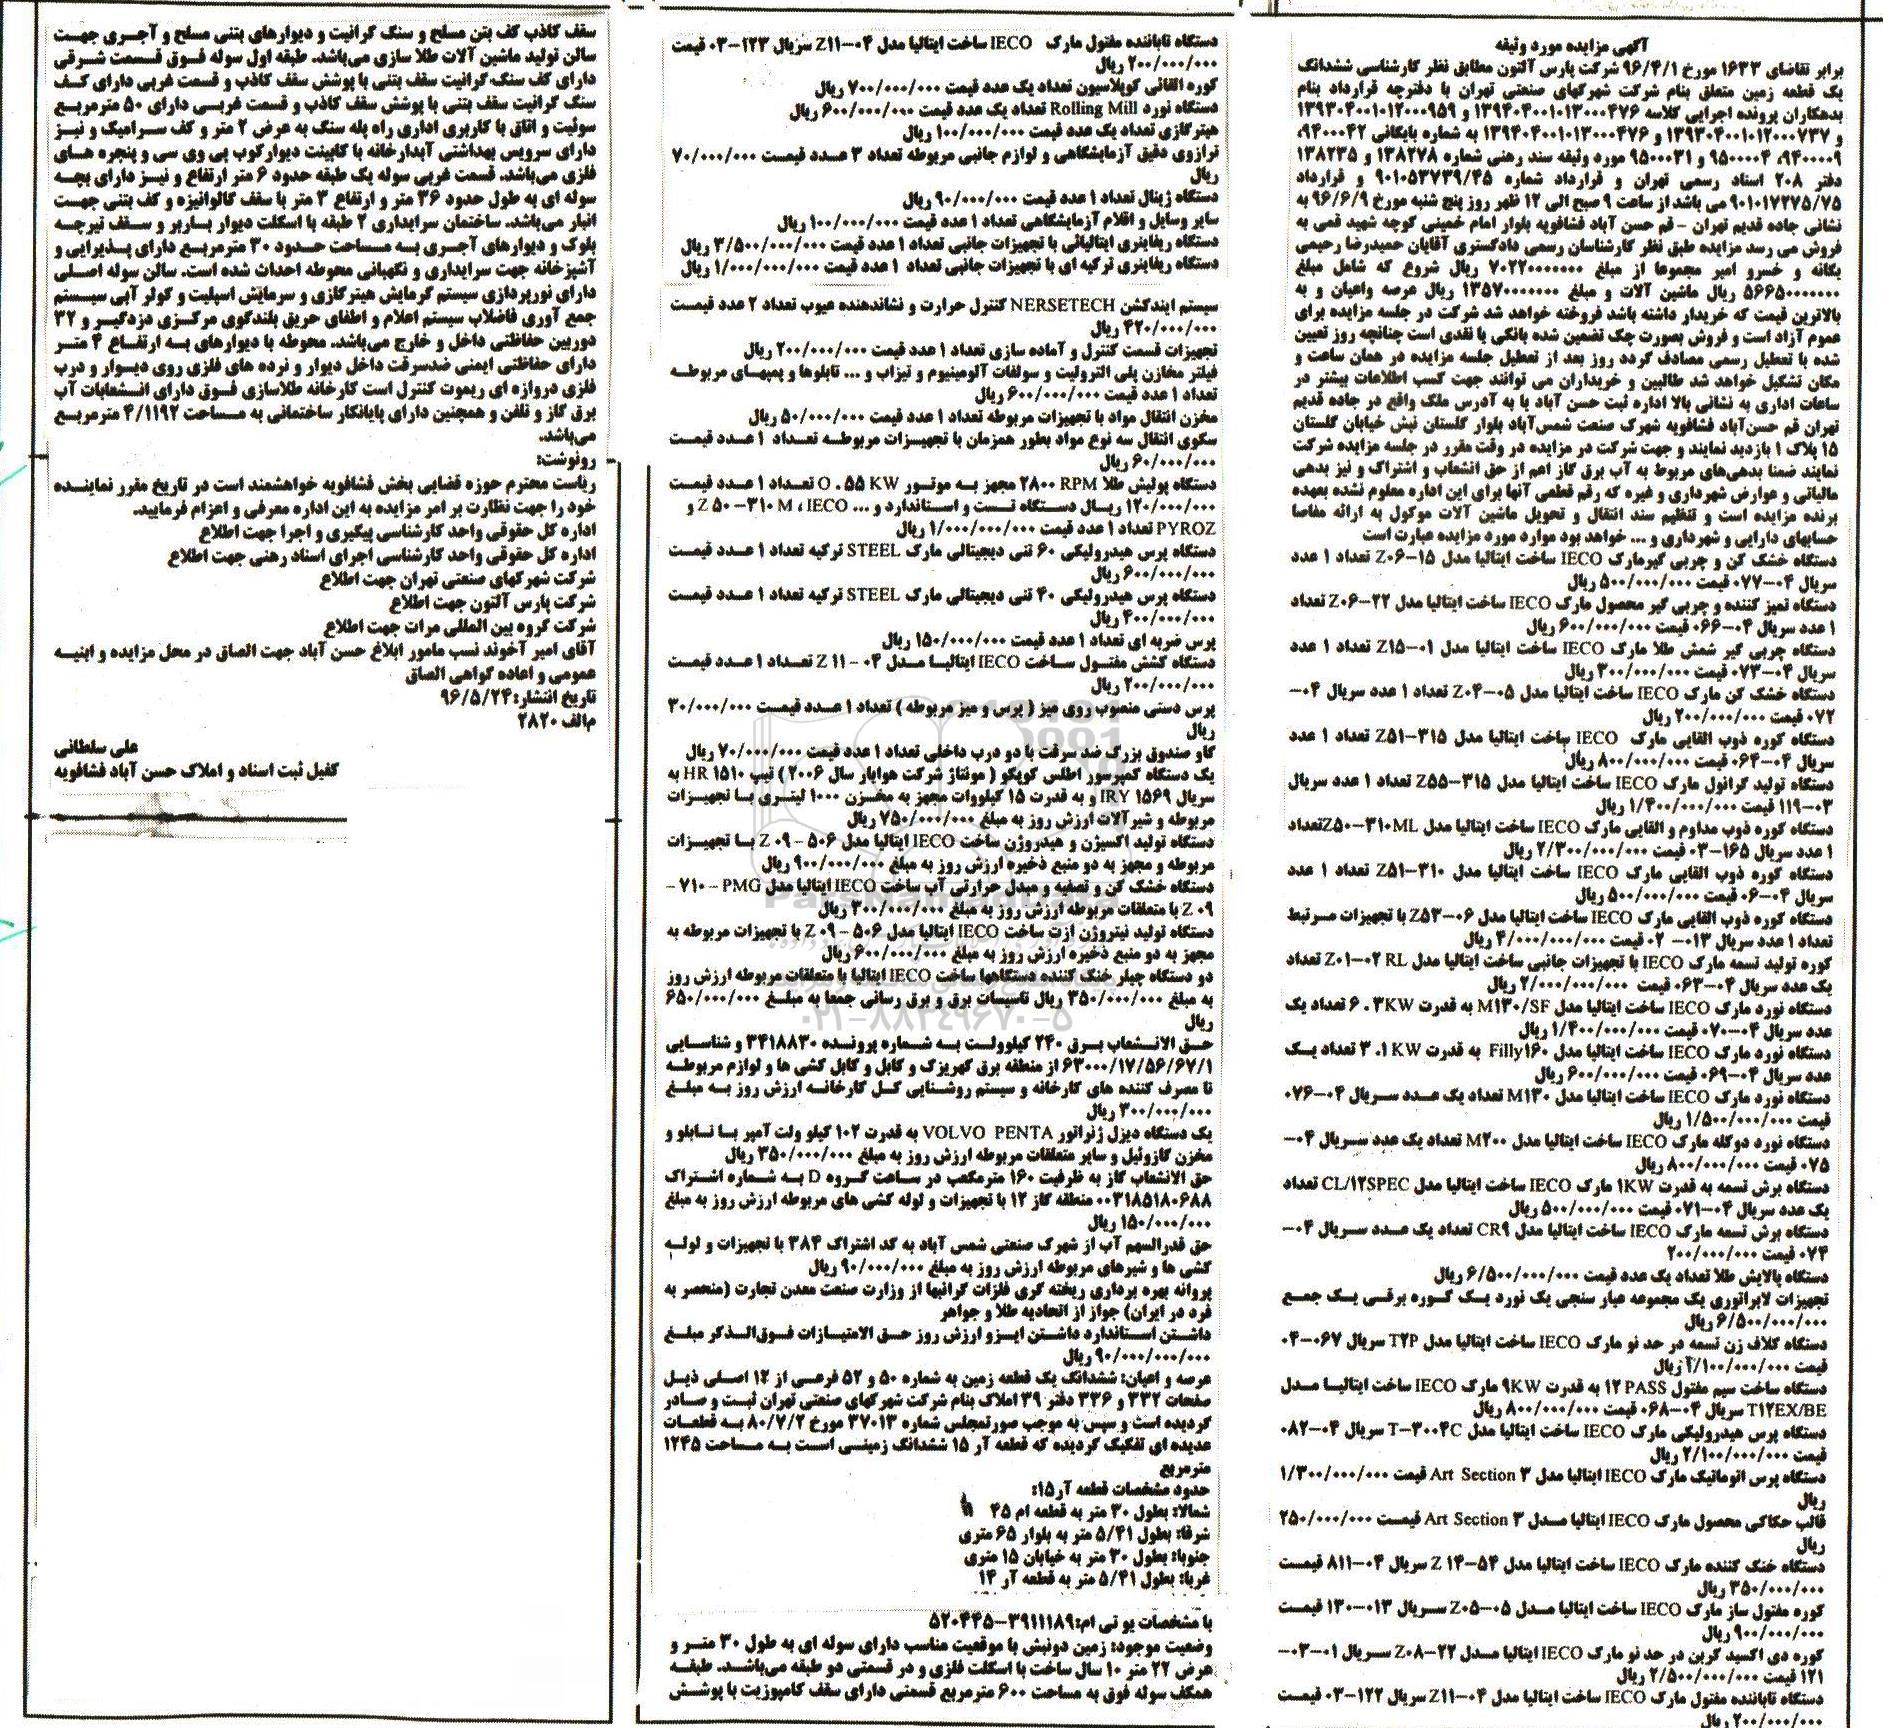 آگهی مزایده مورد وثیقه
برابر تقاضای ۱۶۳۳ مورخ ۹۶/۴/۱ شرکت پارس آلتون مطابق نظر کارشناسی ششدانگ
یک قطعه زمین متعلق بنام شرکت شهرکهای صنعتی تهران با دفترچه قرارداد بنام
بدهکاران پرونده اجرایی کلاسه ۱۳۹۴۰۴۰۰۱۰۱۳۰۰۰۴۷۶ و ۱۳۹۳۰۴۰۰۱۰۱۲۰۰۰۹۵۹
و ۱۳۹۳۰۴۰۰۱۰۱۲۰۰۰۷۳۷ و ۱۳۹۴۰۴۰۰۱۰۱۳۰۰۰۴۷۶ به شماره بایگانی ۹۴۰۰۰۴۲،
۹۴۰۰۰۰۹، ۹۵۰۰۰۰۴ و ۹۵۰۰۰۳۱ مورد وثیقه سند رهنی شماره ۱۳۸۲۷۸ و ۱۳۸۲۳۵
دفتر ۲۰۸ اسناد رسمی تهران و قرارداد شماره ۹۰۱۰۵۳۷۳۹/۴۵ و قرارداد
۹۰۱۰۱۷۲۷۵/۷۵ می باشد از ساعت ۹ صبح الی ۱۲ ظهر روز پنج شنبه مورخ ۹۶/۶/۹ به
نشانی جاده قدیم تهران – قم حسن آباد فشافویه بلوار امام خمینی کوچه شهید قمی به
فروش می رسد مزایده طبق نظر کارشناسان رسمی دادگستری آقایان حمیدرضا رحیمی
یگانه و خسرو امیر مجموعا از مبلغ ۷۰۲۲۰۰۰۰۰۰۰ ریال شروع که شامل مبلغ
۵۶۶۵۰۰۰۰۰۰۰ ریال ماشین آلات و مبلغ ۱۳۵۷۰۰۰۰۰۰۰ ریال عرصه واعیان و به
بالاترین قیمت که خریدار داشته باشد فروخته خواهد شد شرکت در جلسه مزایده برای
عموم آزاد است و فروش بصورت چک تضمین شده بانکی یا نقدی است چنانچه روز تعیین
شده با تعطیل رسمی مصادف گردد روز بعد از تعطیل جلسه مزایده در همان ساعت و
مکان تشکیل خواهد شد طالبین و خریداران می توانند جهت کسب اطلاعات بیشتر در
ساعات اداری به نشانی بالا اداره ثبت حسن آباد یا به آدرس ملک واقع در جاده قدیم
تهران قم حسن‌آباد فشافویه شهرک صنعت شمس‌آباد بلوار گلستان نبش خیابان گلستان
۱۵ پلاک ۱ بازدید نمایند و جهت شرکت در مزایده در وقت مقرر در جلسه مزایده شرکت
نمایند ضمنا بدهی‌های مربوط به آب برق گاز اعم از حق انشعاب و اشتراک و نیز بدهی
مالیاتی و عوارض شهرداری و غیره که رقم قطعی آنها برای این اداره معلوم نشده بعهده
برنده مزایده است و تنظیم سند انتقال و تحویل ماشین آلات موکول به ارائه مفاصا
حسابهای دارایی و شهرداری و ... خواهد بود موارد مورد مزایده عبارت است
دستگاه خشک کن و چربی گیرمارک IECO ساخت ایتالیا مدل Z۰۶-۱۵ تعداد ۱ عدد
سریال ۰۴-۰۷۷ قیمت ۵۰۰/۰۰۰/۰۰۰ ریال
دستگاه تمیز کننده و چربی گیر محصول مارک IECO ساخت ایتالیا مدل Z۰۶-۲۲ تعداد
۱ عدد سریال ۰۴-۰۶۶ قیمت ۶۰۰/۰۰۰/۰۰۰ ریال
دستگاه چربی گیر شمش طلا مارک IECO ساخت ایتالیا مدل Z۱۵-۰۱ تعداد ۱ عدد
سریال ۰۴-۰۷۳ قیمت ۳۰۰/۰۰۰/۰۰۰ ریال
دستگاه خشک کن مارک IECO ساخت ایتالیا مدل Z۰۴-۰۵ تعداد ۱ عدد سریال ۰۴-
۰۷۲ قیمت ۲۰۰/۰۰۰/۰۰۰ ریال
دستگاه کوره ذوب القایی مارک IECO ساخت ایتالیا مدل Z۵۱-۳۱۵ تعداد ۱ عدد
سریال ۰۴-۰۶۴ قیمت ۸۰۰/۰۰۰/۰۰۰ ریال
دستگاه تولید گرانول مارک IECO ساخت ایتالیا مدل Z۵۵-۳۱۵ تعداد ۱ عدد سریال
۰۳-۱۱۹ قیمت ۱/۴۰۰/۰۰۰/۰۰۰ ریال
دستگاه کوره ذوب مداوم و القایی مارک IECO ساخت ایتالیا مدل Z۵۰-۳۱۰ML تعداد
۱ عدد سریال ۱۶۵-۰۳ قیمت ۲/۳۰۰/۰۰۰/۰۰۰ ریال
دستگاه کوره ذوب القایی مارک IECO ساخت ایتالیا مدل Z۵۱-۳۱۰ تعداد ۱ عدد
سریال ۰۴-۰۶ قیمت ۵۰۰/۰۰۰/۰۰۰ ریال
دستگاه کوره ذوب القایی مارک IECO ساخت ایتالیا مدل Z۵۳-۰۶ با تجهیزات مرتبط
تعداد ۱ عدد سریال ۰۱۳-۰۲ قیمت ۴/۰۰۰/۰۰۰/۰۰۰ ریال
کوره تولید تسمه مارک IECO با تجهیزات جانبی ساخت ایتالیا مدل Z۰۱-۰۲ RL تعداد
یک عدد سریال ۰۴-۰۶۳ قیمت ۲/۰۰۰/۰۰۰/۰۰۰ ریال
دستگاه نورد مارک IECO ساخت ایتالیا مدل M۱۳۰/SF به قدرت ۶.۳KW تعداد یک
عدد سریال ۰۴-۰۷۰ قیمت ۱/۴۰۰/۰۰۰/۰۰۰ ریال
دستگاه نورد مارک IECO ساخت ایتالیا مدل Filly۱۶۰ به قدرت ۳.۱ KW تعداد یک
عدد سریال ۰۴-۰۶۹ قیمت ۶۰۰/۰۰۰/۰۰۰ ریال
دستگاه نورد مارک IECO ساخت ایتالیا مدل M۱۳۰ تعداد یک عدد سریال ۰۴-۰۷۶
قیمت ۱/۵۰۰/۰۰۰/۰۰۰ ریال
دستگاه نورد دوکله مارک IECO ساخت ایتالیا مدل M۲۰۰ تعداد یک عدد سریال ۰۴-
۰۷۵ قیمت ۸۰۰/۰۰۰/۰۰۰ ریال
دستگاه برش تسمه به قدرت ۱KW مارک IECO ساخت ایتالیا مدل CL/۱۲SPEC تعداد
یک عدد سریال ۰۴-۰۷۱ قیمت ۵۰۰/۰۰۰/۰۰۰ ریال
دستگاه برش تسمه مارک IECO ساخت ایتالیا مدل CR۹ تعداد یک عدد سریال ۰۴-
۰۷۴ قیمت ۲۰۰/۰۰۰/۰۰۰
دستگاه پالایش طلا تعداد یک عدد قیمت ۶/۵۰۰/۰۰۰/۰۰۰ ریال
تجهیزات لابراتوری یک مجموعه عیار سنجی یک نورد یک کوره برقی یک جمع
۶/۵۰۰/۰۰۰/۰۰۰ ریال
دستگاه کلاف زن تسمه در حد نو مارک IECO ساخت ایتالیا مدل T۲P سریال ۰۶۷-۰۴
قیمت ۲/۱۰۰/۰۰۰/۰۰۰ ریال
دستگاه ساخت سیم مفتول ۱۲ PASS به قدرت ۹KW مارک IECO ساخت ایتالیا مدل
T۱۲EX/BE سریال ۰۴-۰۶۸ قیمت ۸۰۰/۰۰۰/۰۰۰ ریال
دستگاه پرس هیدرولیکی مارک IECO ساخت ایتالیا مدل T-۳۰۰۴C سریال ۰۴-۰۸۲
قیمت ۲/۱۰۰/۰۰۰/۰۰۰ ریال
دستگاه پرس اتوماتیک مارک IECO ایتالیا مدل Art Section ۳ قیمت ۱/۳۰۰/۰۰۰/۰۰۰
ریال
قالب حکاکی محصول مارک IECO ایتالیا مدل Art Section ۳ قیمت ۲۵۰/۰۰۰/۰۰۰
ریال
دستگاه خنک کننده مارک IECO ساخت ایتالیا مدل Z ۱۴-۵۴ سریال ۰۴-۸۱۱ قیمت
۳۵۰/۰۰۰/۰۰۰ ریال
کوره مفتول ساز مارک IECO ساخت ایتالیا مدل Z۰۵-۰۵ سریال ۰۱۳-۱۳۰ قیمت
۹۰۰/۰۰۰/۰۰۰ ریال
کوره دی اکسید کربن در حد نو مارک IECO ایتالیا مدل Z۰۸-۲۲ سریال ۰۱-۰۳-
۱۲۱ قیمت ۲/۵۰۰/۰۰۰/۰۰۰ ریال
دستگاه تاباننده مفتول مارک IECO ساخت ایتالیا مدل Z۱۱-۰۴ سریال ۱۲۲-۰۳ قیمت
۲۰۰/۰۰۰/۰۰۰ ریال
دستگاه تاباننده مفتول مارک IECO ساخت ایتالیا مدل Z۱۱-۰۴ سریال ۱۲۳-۰۳ قیمت
۲۰۰/۰۰۰/۰۰۰ ریال
کوره القائی کوپلاسیون تعداد یک عدد قیمت ۷۰۰/۰۰۰/۰۰۰ ریال
دستگاه نورد Rolling Mill تعداد یک عدد قیمت ۶۰۰/۰۰۰/۰۰۰ ریال
هیترگازی تعداد یک عدد قیمت ۱۰۰/۰۰۰/۰۰۰ ریال
ترازوی دقیق آزمایشگاهی و لوازم جانبی مربوطه تعداد ۳ عدد قیمت ۷۰/۰۰۰/۰۰۰
ریال
دستگاه ژینال تعداد ۱ عدد قیمت ۹۰/۰۰۰/۰۰۰ ریال
سایر وسایل و اقلام آزمایشگاهی تعداد ۱ عدد قیمت ۱۰۰/۰۰۰/۰۰۰ ریال
دستگاه ریفاینری ایتالیائی با تجهیزات جانبی تعداد ۱ عدد قیمت ۳/۵۰۰/۰۰۰/۰۰۰ ریال
دستگاه ریفاینری ترکیه ای با تجهیزات جانبی تعداد ۱ عدد قیمت ۱/۰۰۰/۰۰۰/۰۰۰ ریال
سیستم ایندکشن NERSETECH کنترل حرارت و نشاندهنده عیوب تعداد ۲ عدد قیمت
۴۲۰/۰۰۰/۰۰۰ ریال
تجهیزات قسمت کنترل و آماده سازی تعداد ۱ عدد قیمت ۲۰۰/۰۰۰/۰۰۰ ریال
فیلتر مخازن پلی الترولیت و سولفات آلومینیوم و تیزاب و ... تابلوها و پمپهای مربوطه
تعداد ۱ عدد قیمت ۶۰۰/۰۰۰/۰۰۰ ریال
مخزن انتقال مواد با تجهیزات مربوطه تعداد ۱ عدد قیمت ۵۰/۰۰۰/۰۰۰ ریال
سکوی انتقال سه نوع مواد بطور همزمان با تجهیزات مربوطه تعداد ۱ عدد قیمت
۶۰/۰۰۰/۰۰۰ ریال
دستگاه پولیش طلا ۲۸۰۰ RPM مجهز به موتور ۵۵ KW . O تعداد ۱ عدد قیمت
۱۲۰/۰۰۰/۰۰۰ ریال دستگاه تست و استاندارد و ... Z ۵۰-۳۱۰ M ، IECO و
PYROZ تعداد ۱ عدد قیمت ۱/۰۰۰/۰۰۰/۰۰۰ ریال
دستگاه پرس هیدرولیکی ۶۰ تنی دیجیتالی مارک STEEL ترکیه تعداد ۱ عدد قیمت
۶۰۰/۰۰۰/۰۰۰ ریال
دستگاه پرس هیدرولیکی ۴۰ تنی دیجیتالی مارک STEEL ترکیه تعداد ۱ عدد قیمت
۴۰۰/۰۰۰/۰۰۰ ریال
پرس ضربه ای تعداد ۱ عدد قیمت ۱۵۰/۰۰۰/۰۰۰ ریال
دستگاه کشش مفتول ساخت IECO ایتالیا مدل Z ۱۱ - ۰۴ تعداد ۱ عدد قیمت
۲۰۰/۰۰۰/۰۰۰ ریال
پرس دستی منصوب روی میز ( پرس و میز مربوطه ) تعداد ۱ عدد قیمت ۳۰/۰۰۰/۰۰۰
ریال
گاو صندوق بزرگ ضد سرقت با دو درب داخلی تعداد ۱ عدد قیمت ۷۰/۰۰۰/۰۰۰ ریال
یک دستگاه کمپرسور اطلس کوپکو ( مونتاژ شرکت هوایار سال ۲۰۰۶ ) تیپ HR ۱۵۱۰ به
سریال IRY ۱۵۶۹ و به قدرت ۱۵ کیلووات مجهز به مخزن ۱۰۰۰ لیتری با تجهیزات
مربوطه و شیرآلات ارزش روز به مبلغ ۷۵۰/۰۰۰/۰۰۰ ریال
دستگاه تولید اکسیژن و هیدروژن ساخت IECO ایتالیا مدل Z ۰۹ - ۵۰۶ با تجهیزات
مربوطه و مجهز به دو منبع ذخیره ارزش روز به مبلغ ۹۰۰/۰۰۰/۰۰۰ ریال
دستگاه خشک کن و تصفیه و مبدل حرارتی آب ساخت IECO ایتالیا مدل PMG - ۷۱۰ -
Z ۰۹ با متعلقات مربوطه ارزش روز به مبلغ ۳۰۰/۰۰۰/۰۰۰ ریال
دستگاه تولید نیتروژن ازت ساخت IECO ایتالیا مدل Z ۰۹ - ۵۰۶ با تجهیزات مربوطه به
مجهز به دو منبع ذخیره ارزش روز به مبلغ ۶۰۰/۰۰۰/۰۰۰ ریال
دو دستگاه چیلر خنک کننده دستگاهها ساخت IECO ایتالیا با متعلقات مربوطه ارزش روز
به مبلغ ۳۵۰/۰۰۰/۰۰۰ ریال تاسیسات برق و برق رسانی جمعا به مبلغ ۶۵۰/۰۰۰/۰۰۰
ریال
حق الانشعاب برق ۲۴۰ کیلوولت به شماره پرونده ۳۴۱۸۸۳۰ و شناسایی
۶۳۰۰۰/۱۷/۵۶/۶۷/۱ از منطقه برق کهریزک و کابل و کابل کشی ها و لوازم مربوطه
تا مصرف کننده های کارخانه و سیستم روشنایی کل کارخانه ارزش روز به مبلغ
۳۰۰/۰۰۰/۰۰۰ ریال
یک دستگاه دیزل ژنراتور VOLVO PENTA به قدرت ۱۰۲ کیلو ولت آمپر با تابلو و
مخزن گازوئیل و سایر متعلقات مربوطه ارزش روز به مبلغ ۳۵۰/۰۰۰/۰۰۰ ریال
حق الانشعاب گاز به ظرفیت ۱۶۰ مترمکعب در ساعت گروه D به شماره اشتراک
۰۰۳۱۸۵۱۸۰۶۸۸ منطقه گاز ۱۲ با تجهیزات و لوله کشی های مربوطه ارزش روز به مبلغ
۱۵۰/۰۰۰/۰۰۰ ریال
حق قدرالسهم آب از شهرک صنعتی شمس آباد به کد اشتراک ۳۸۴ با تجهیزات و لوله
کشی ها و شیرهای مربوطه ارزش روز به مبلغ ۹۰/۰۰۰/۰۰۰ ریال
پروانه بهره برداری ریخته گری فلزات گرانبها از وزارت صنعت معدن تجارت (منحصر به
فرد در ایران) جواز از اتحادیه طلا و جواهر
داشتن استاندارد داشتن ایزو ارزش روز حق الامتیازات فوق‌الذکر مبلغ
۹۰/۰۰۰/۰۰۰/۰۰۰ ریال
عرصه و اعیان: ششدانگ یک قطعه زمین به شماره ۵۰ و ۵۲ فرعی از ۱۲ اصلی ذیل
صفحات ۳۳۲ و ۳۳۶ دفتر ۳۹ املاک بنام شرکت شهرکهای صنعتی تهران ثبت و صادر
گردیده است و سپس به موجب صورتمجلس شماره ۳۷۰۱۳ مورخ ۸۰/۷/۲ به قطعات
عدیده ای تفکیک گردیده که قطعه آر ۱۵ ششدانگ زمینی است به مساحت ۱۲۴۵
مترمربع
حدود مشخصات قطعه آر۱۵:
شمالا: بطول ۳۰ متر به قطعه ام ۴۵
شرقا: بطول ۵/۴۱ متر به بلوار ۶۵ متری
جنوبا: بطول ۳۰ متر به خیابان ۱۵ متری
غربا: بطول ۵/۴۱ متر به قطعه آر ۱۴
با مشخصات یو تی ام:۳۹۱۱۱۸۹-۵۲۰۴۴۵
وضعیت موجود: زمین دونبش با موقعیت مناسب دارای سوله ای به طول ۳۰ متر و
عرض ۲۲ متر ۱۰ سال ساخت با اسکلت فلزی و در قسمتی دو طبقه می‌باشد. طبقه
همکف سوله فوق به مساحت ۶۰۰ مترمربع قسمتی دارای سقف کامپوزیت با پوشش
سقف کاذب کف بتن مسلح و سنگ گرانیت و دیوارهای بتنی مسلح و آجری جهت
سالن تولید ماشین آلات طلا سازی می‌باشد. طبقه اول سوله فوق قسمت شرقی
دارای کف سنگ گرانیت سقف بتنی با پوشش سقف کاذب و قسمت غربی دارای کف
سنگ گرانیت سقف بتنی با پوشش سقف کاذب و قسمت غربی دارای ۵۰ مترمربع
سوئیت و اتاق با کاربری اداری راه پله سنگ به عرض ۲ متر و کف سرامیک و نیز
دارای سرویس بهداشتی آبدارخانه با کابینت دیوارکوب پی وی سی و پنجره های
فلزی می‌باشد. قسمت غربی سوله یک طبقه حدود ۶ متر ارتفاع و نیز دارای بچه
سوله ای به طول حدود ۳۶ متر و ارتفاع ۳ متر با سقف گالوانیزه و کف بتنی جهت
انبار می‌باشد. ساختمان سرایداری ۲ طبقه با اسکلت دیوار باربر و سقف تیرچه
بلوک و دیوارهای آجری به مساحت حدود ۳۰ مترمربع دارای پذیرایی و
آشپزخانه جهت سرایداری و نگهبانی محوطه احداث شده است. سالن سوله اصلی
دارای نورپردازی سیستم گرمایش هیترگازی و سرمایش اسپلیت و کولر آبی سیستم
جمع آوری فاضلاب سیستم اعلام و اطفای حریق بلندگوی مرکزی دزدگیر و ۳۲
دوربین حفاظتی داخل و خارج می‌باشد. محوطه با دیوارهای به ارتفاع ۴ متر
دارای حفاظتی ایمنی ضدسرقت داخل دیوار و نرده های فلزی روی دیوار و درب
فلزی دروازه ای ریموت کنترل است کارخانه طلاسازی فوق دارای انشعابات آب
برق گاز و تلفن و همچنین دارای پایانکار ساختمانی به مساحت ۴/۱۱۹۲ مترمربع
می‌باشد.
رونوشت:
ریاست محترم حوزه قضایی بخش فشافویه خواهشمند است در تاریخ مقرر نماینده
خود را جهت نظارت بر امر مزایده به این اداره معرفی و اعزام فرمایید.
اداره کل حقوقی واحد کارشناسی پیگیری و اجرا جهت اطلاع
اداره کل حقوقی واحد کارشناسی اجرای اسناد رهنی جهت اطلاع
شرکت شهرکهای صنعتی تهران جهت اطلاع
شرکت پارس آلتون جهت اطلاع
شرکت گروه بین المللی مرات جهت اطلاع
آقای امیر آخوند نسب مامور ابلاغ حسن آباد جهت الصاق در محل مزایده و ابنیه
عمومی و اعاده گواهی الصاق
تاریخ انتشار:۹۶/۵/۲۴
م‌الف ۲۸۲۰
علی سلطانی
کفیل ثبت اسناد و املاک حسن آباد فشافویه
ParsNamadData
۰۲۱-۸۸۳۴۹۶۷۰-۵